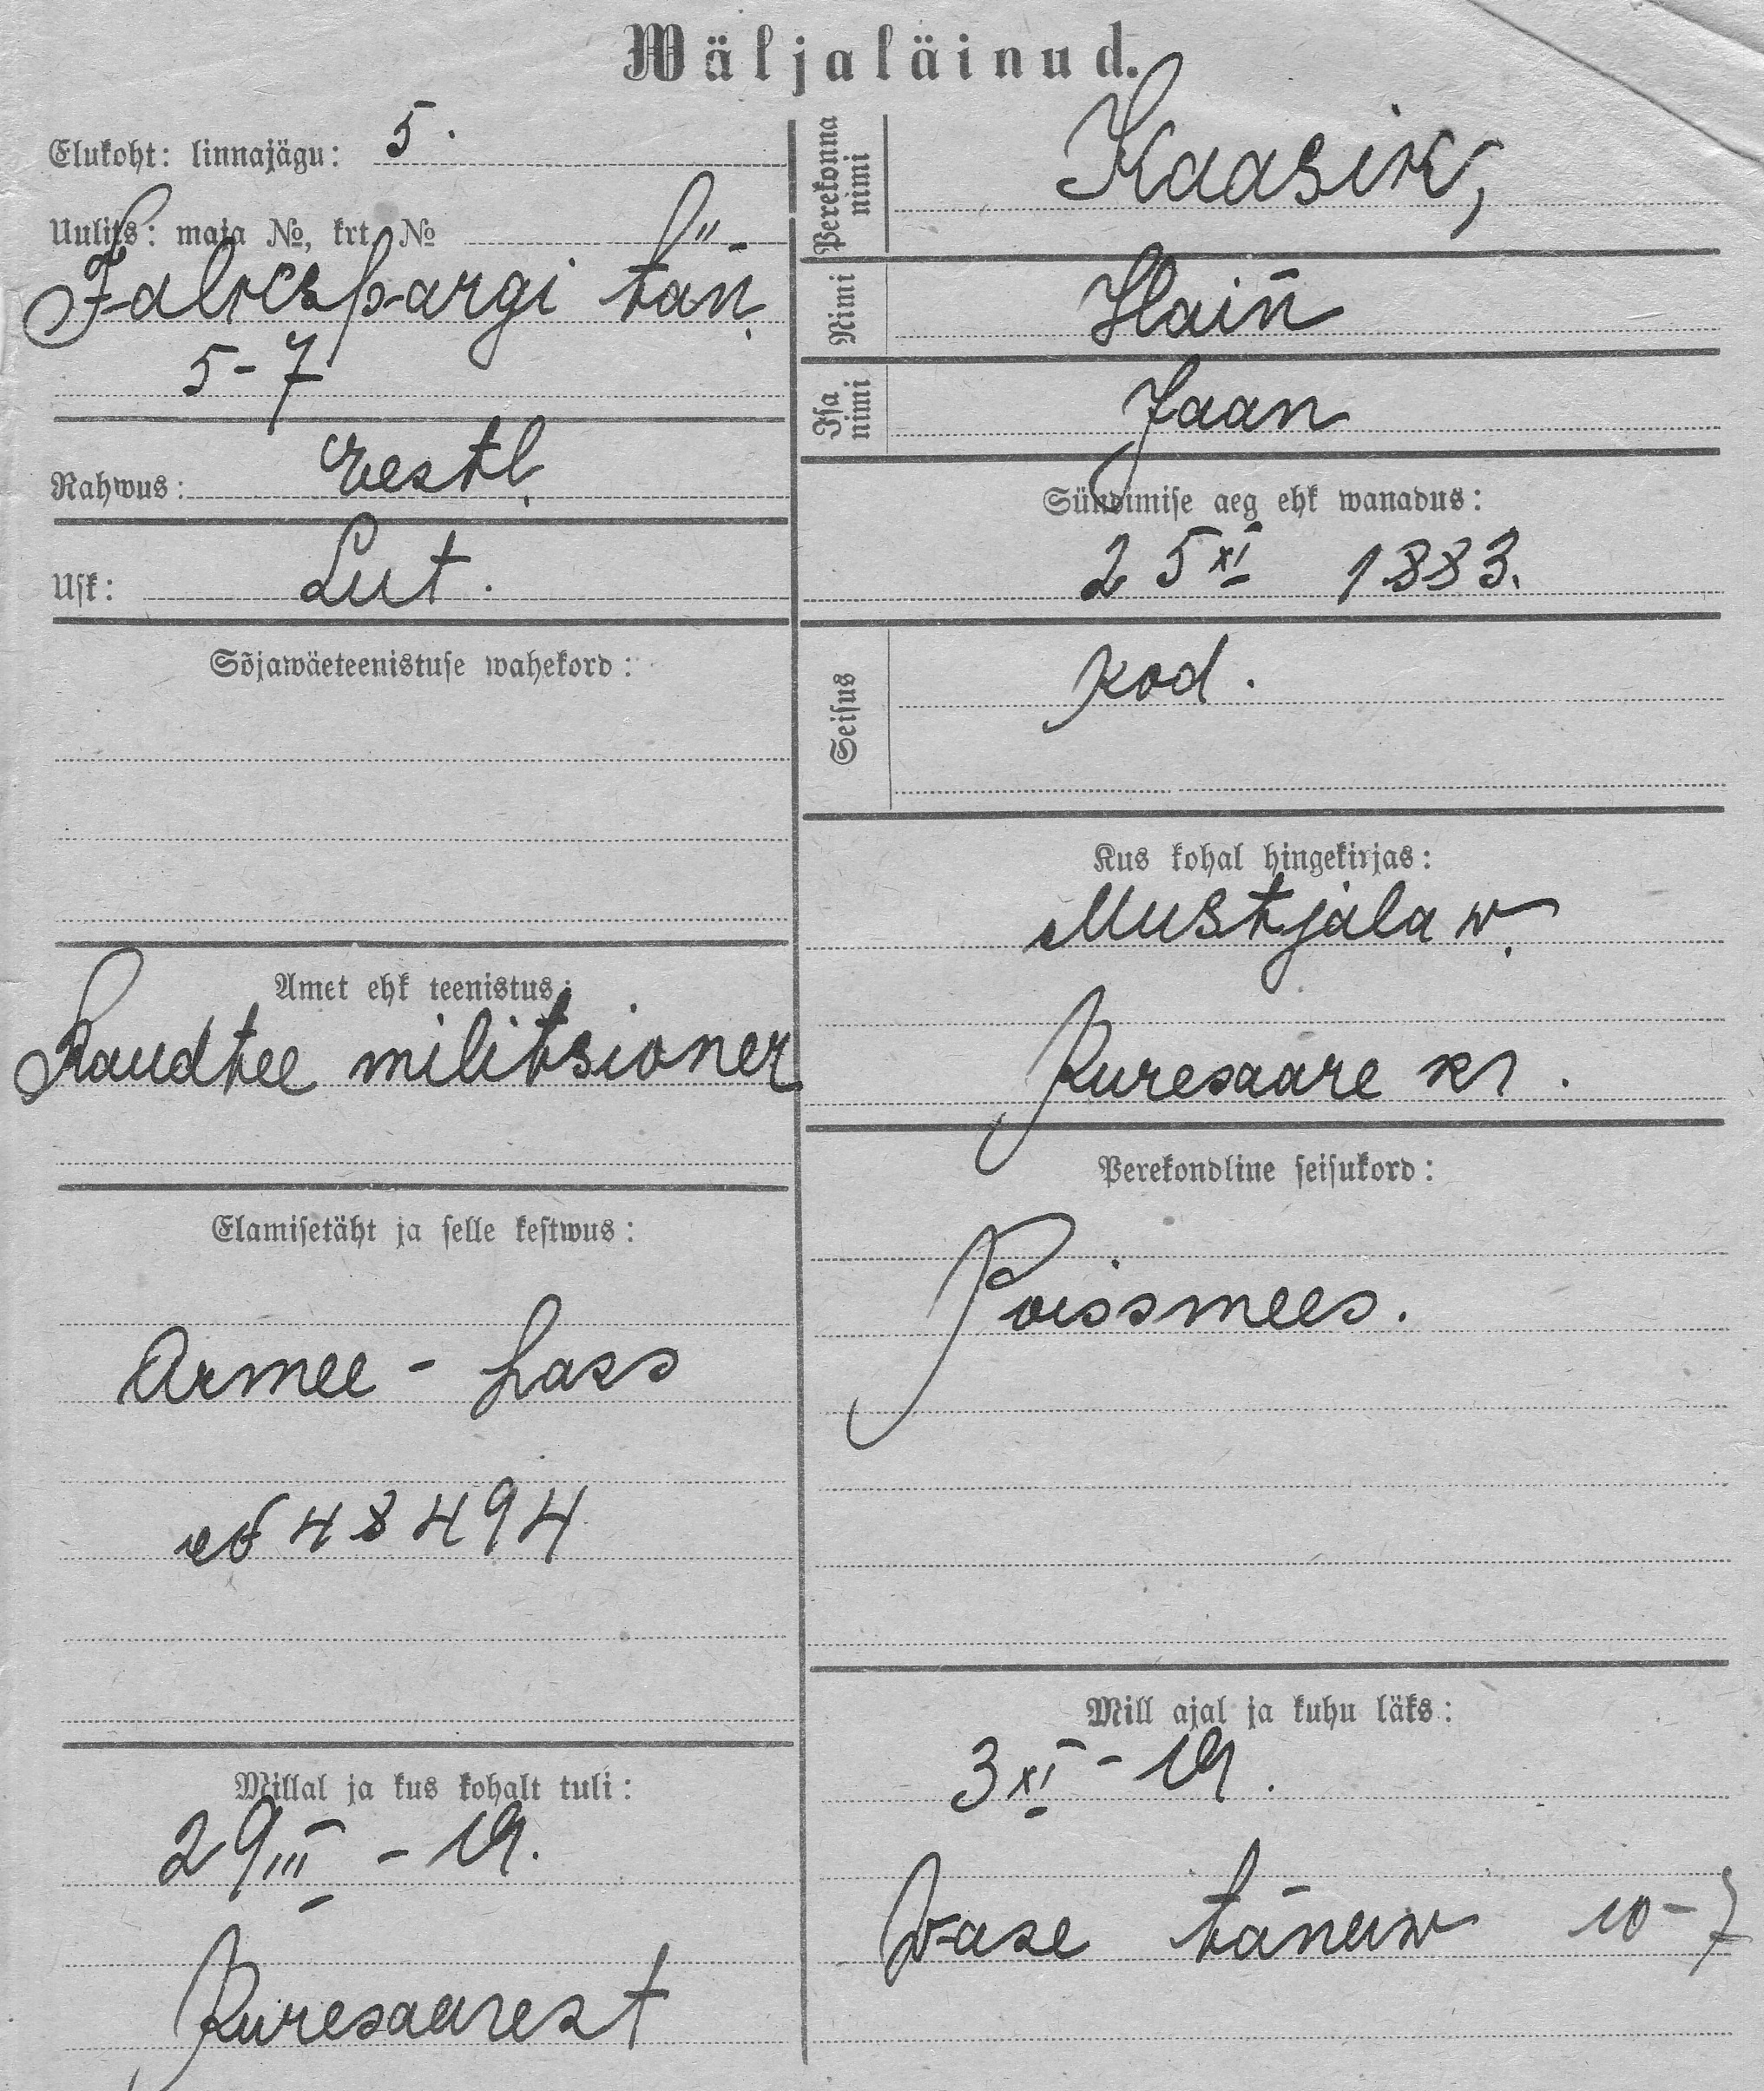 Wäljaläinud.
Elukoht: linnajägu: 5.
Uulits: maja №, krt. №
Falkspargi tän.
5-7
Rahwus: Eestl.
Usk: Lut.
Sõjawäeteenistuse wahekord:
Amet ehk teenistus:
Raudtee militsioner
Elamisetäht ja selle kestwus:
Armee - pass
№ 48494
Millal ja kus kohalt tuli:
29 III - 19.
Kuresaarest
Perekonna nimi Kaasik,
Nimi Hain
Isa nimi Jaan
Sündimise aeg ehk wanadus:
25 XI 1883.
Seisus kod.
Kus kohal hingekirjas:
Mustjala w.
Kuresaare kr.
Perekondline seisukord:
Poissmees.
Mill ajal ja kuhu läks:
3 XI - 19.
Wase tänaw 10-7